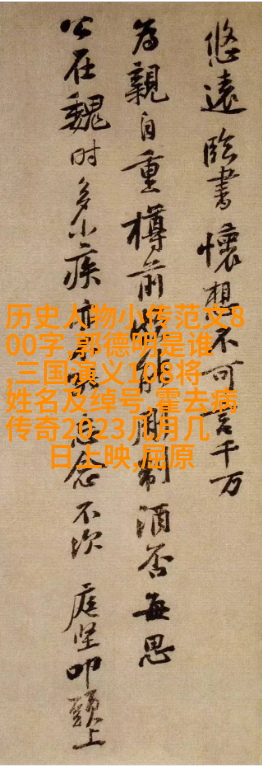 悠遠臨書懷想不可言千万
為親自重樽前能剛制酒否每思
公在魏時多小疾亦念不次 庭坚叩頭上
历史人物小传范文8
00字,郭德明是谁
,三国演义108将
姓名及绰号,霍去病
传奇2023几月几
日上映,屈原